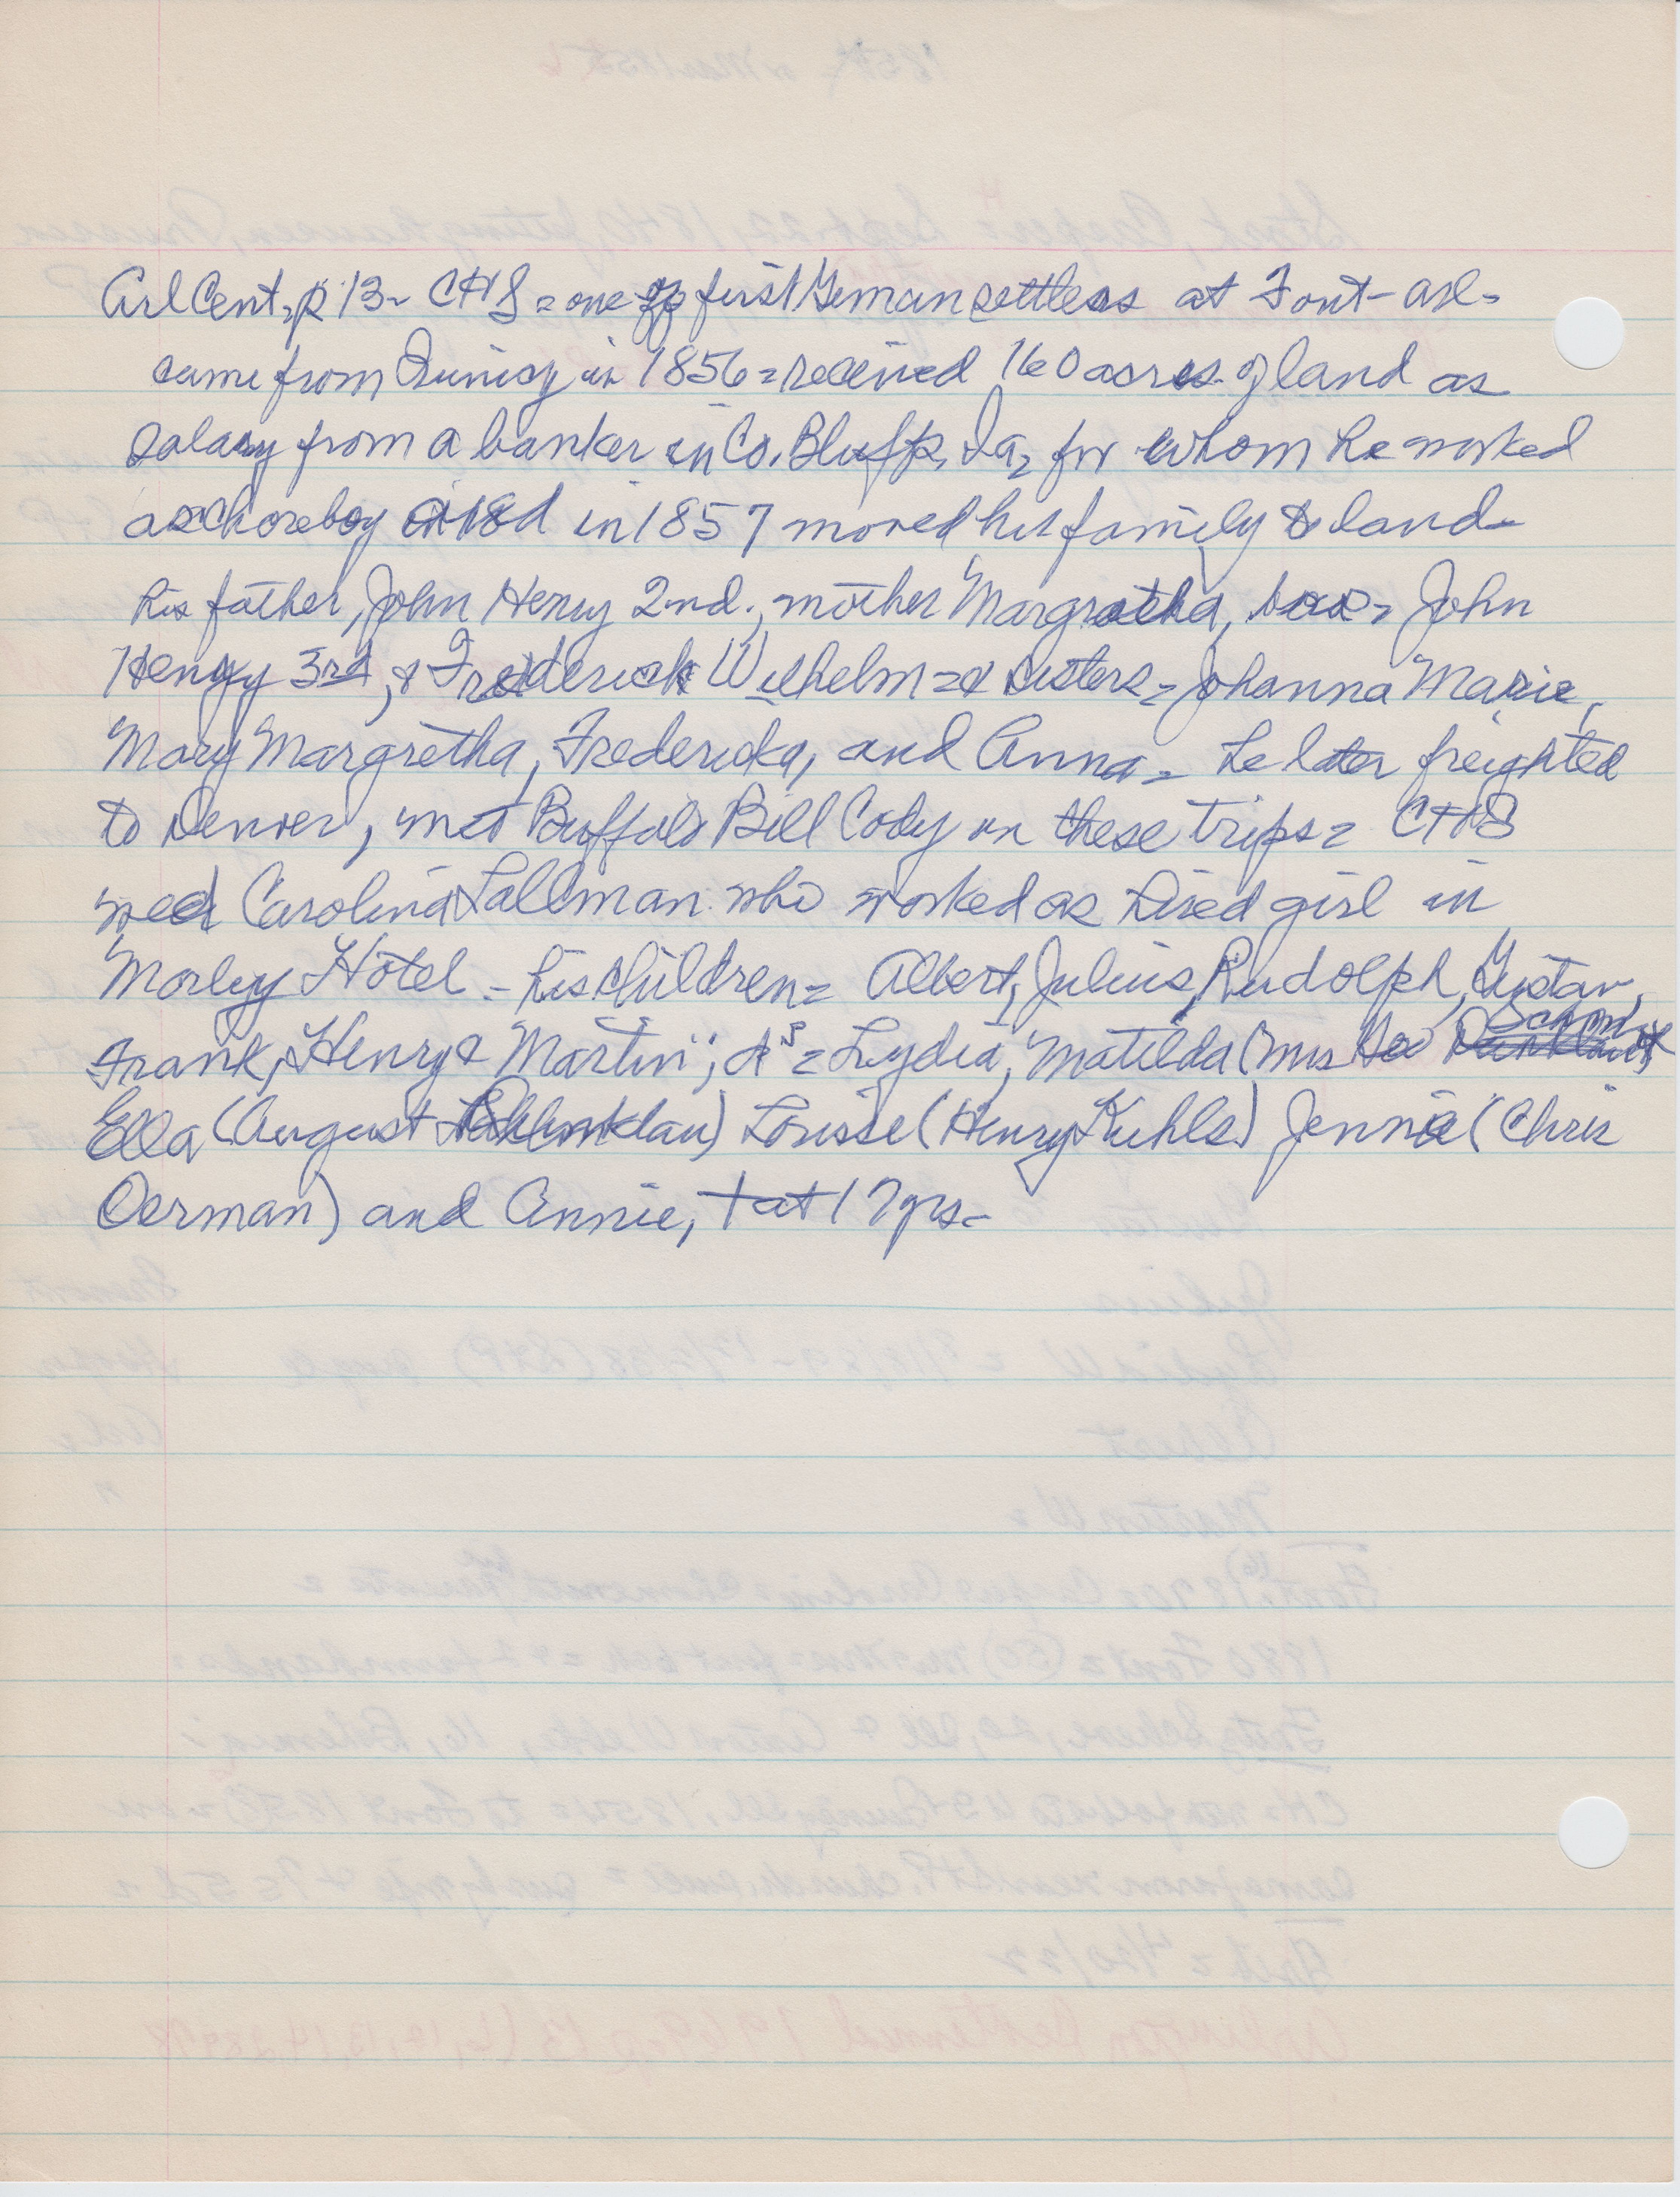 Arl Cent, p 13- CHS = one of first German settlers at Font- Arl-
came from Quincy in 1856 = received 160 acres of land as
salary from a banker in Co. Bluffs, Ia, for whom he worked
as choreboy in 1857 moved his family to land-
his father, John Henry 2nd., mother Margretha, bros = John
Henry 3rd, & Frederick Wilhelm = & sisters = Johanna Marie,
Mary Margretha, Fredericka, and Anna = he later freighted
to Denver, met Buffalo Bill Cody on these trips = CHS
wed Carolina Tallman who worked as hired girl in
Morley Hotel - his children = Albert, Julius, Rudolph, Gustav,
Frank, Henry & Martin; ds = Lydia, Matilda (Mrs
Ella (August Louise (Henry Kuhls) Jennie (Chris
Oerman) and Annie, † at 17 yrs-